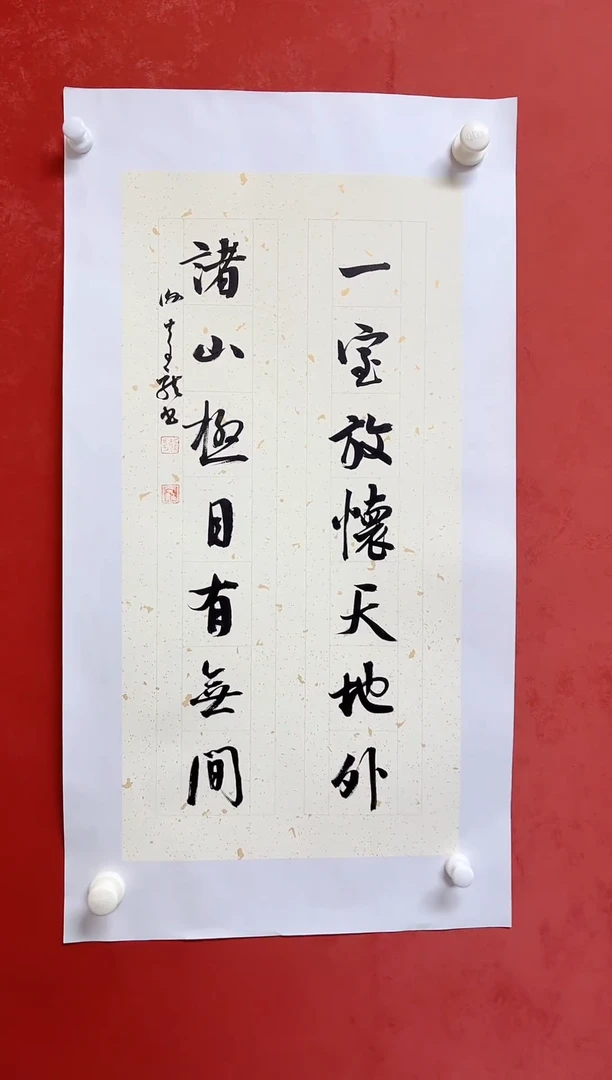 一室放懷天地外
諸山極目有無間